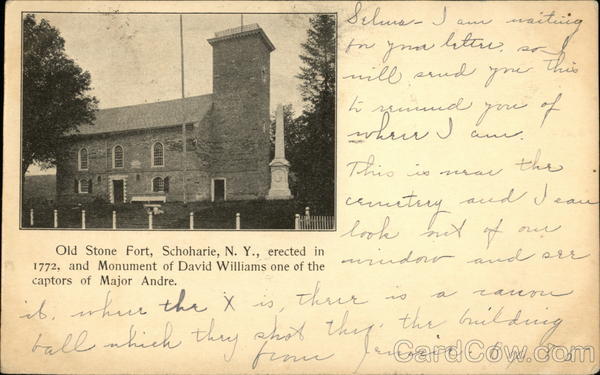 Selma - I am waiting
for your letter, so I
will send you this
to remind you of
where I am.
This is near the
cemetery and I can
look out of our
window and see
it, where the X is, there is a canon
ball which they shot thro. the building
from
Old Stone Fort, Schoharie, N. Y., erected in
1772, and Monument of David Williams one of the
captors of Major Andre.
CardCow.com